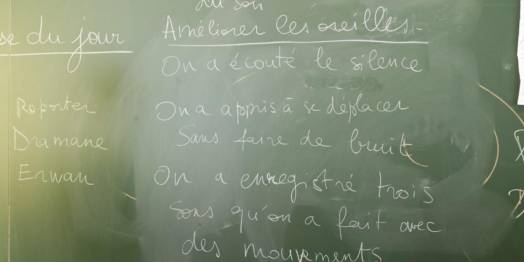 du son
du jour
Améliorer les oreilles
On a écouté le silence
Reporter
On a appris à se déplacer
Dramane
Sans faire de bruit
Erwan
On a enregistré trois
sons qu'on a fait avec
des mouvements